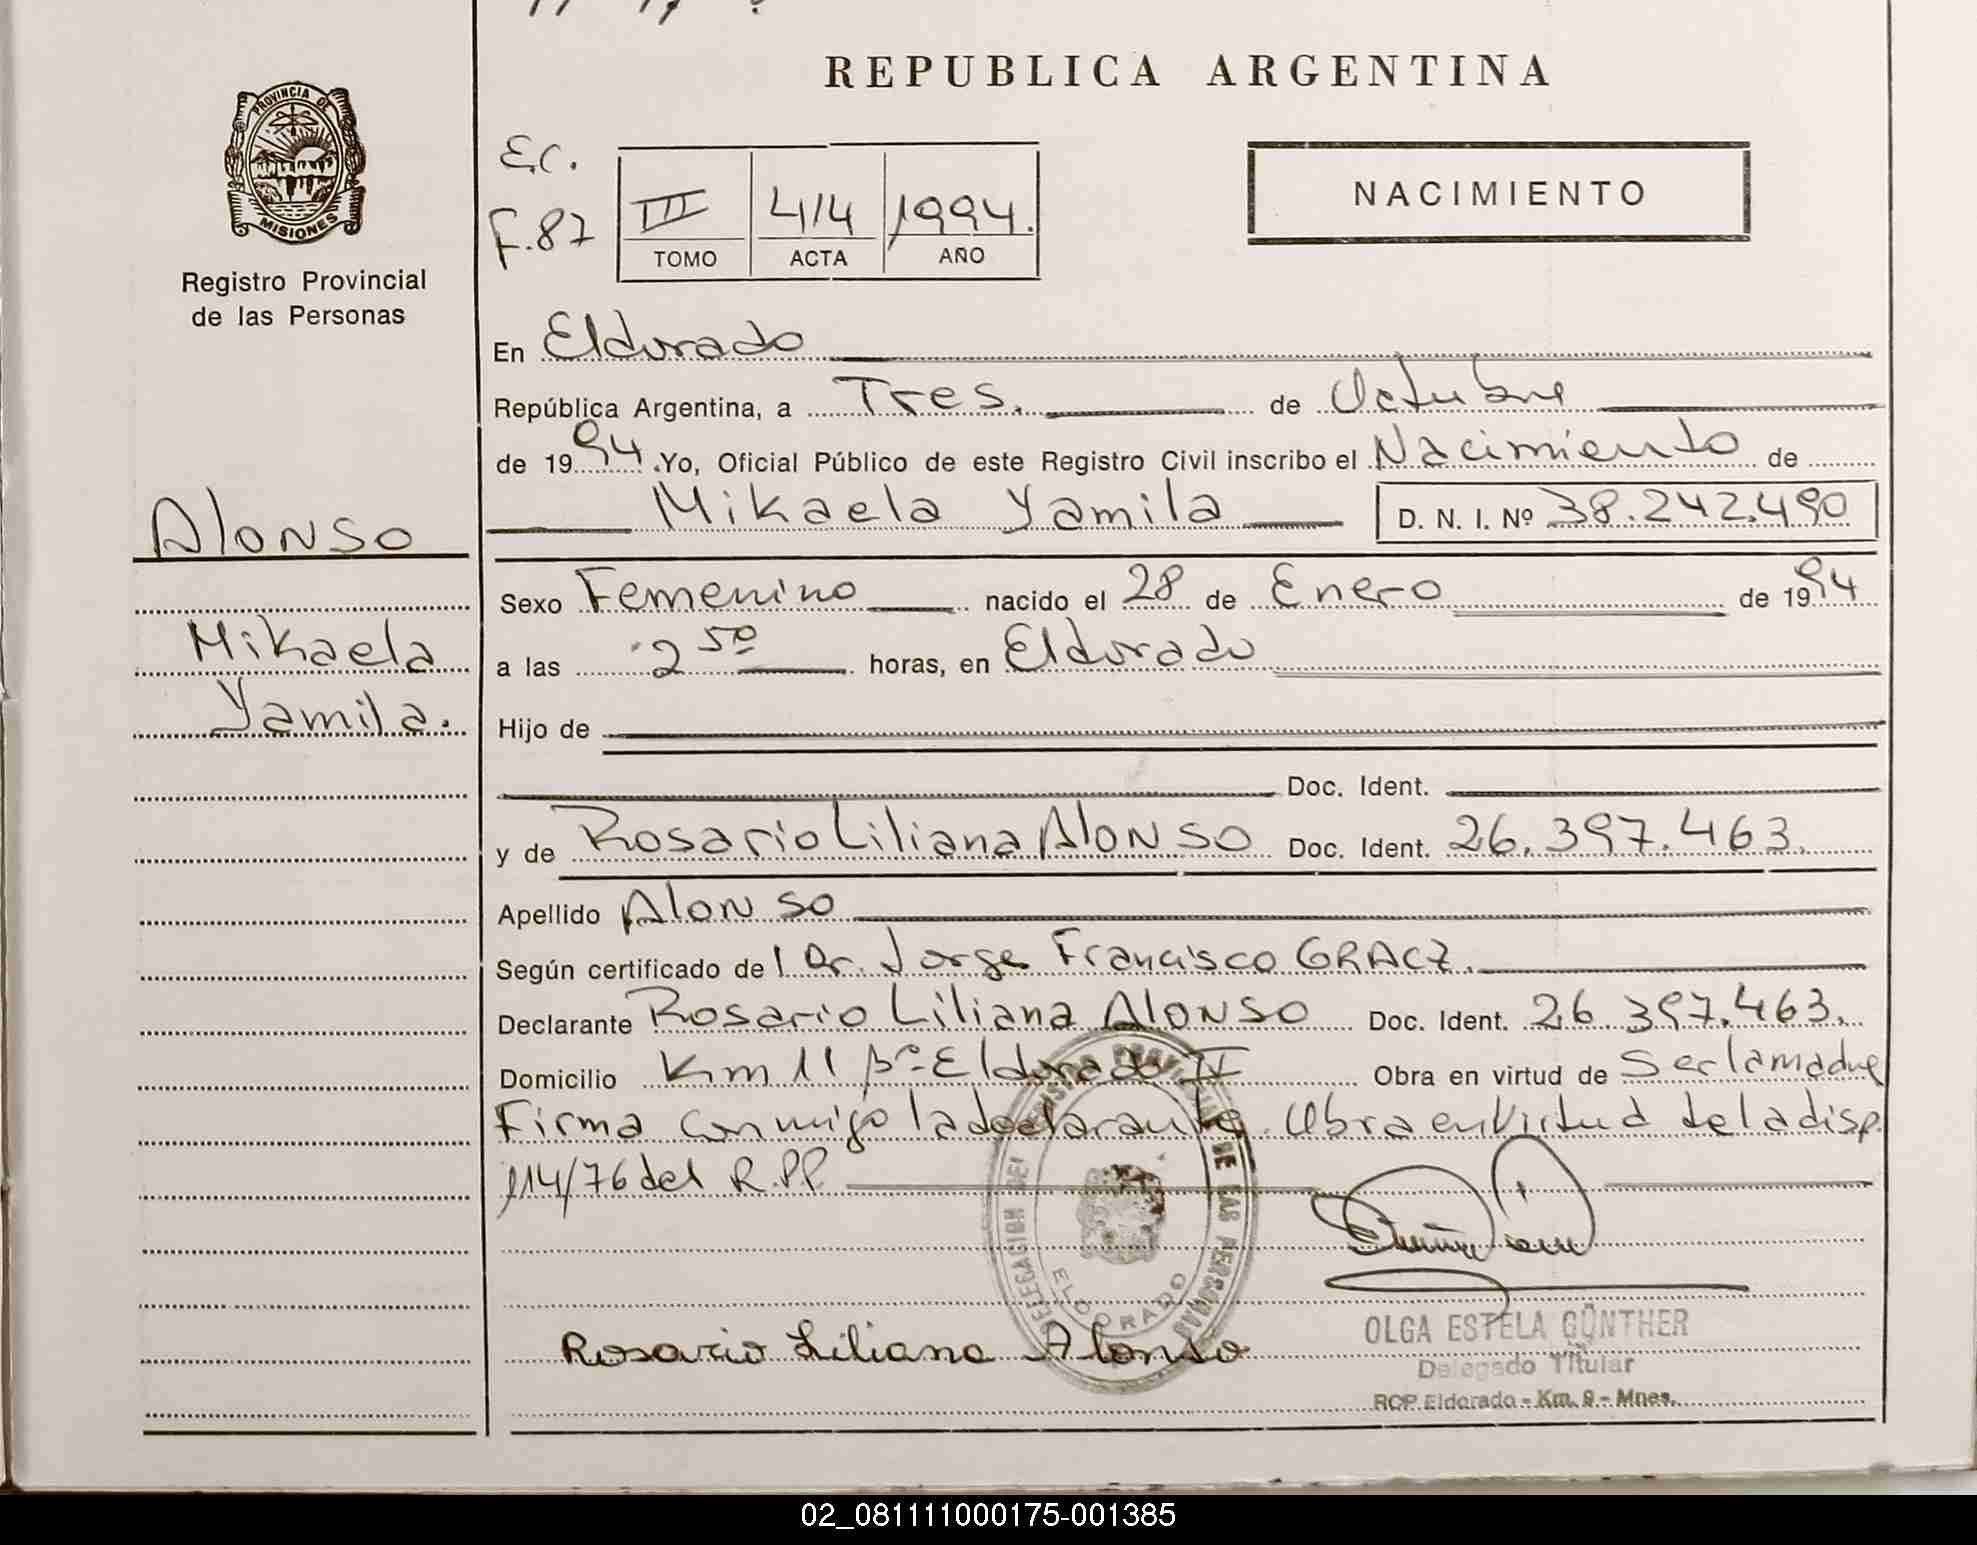 REPUBLICA ARGENTINA
PROVINCIA DE
MISIONES
Registro Provincial
de las Personas
E.C.
F.87
III 414 1994.
TOMO ACTA AÑO
NACIMIENTO
En Eldorado
República Argentina, a Tres. de Octubre
de 1994 .Yo, Oficial Público de este Registro Civil inscribo el Nacimiento de
Mikaela Yamila D. N. I. Nº 38.242.490
Alonso
Mikaela
Yamila.
Sexo Femenino nacido el 28 de Enero de 1994
a las 2 50 horas, en Eldorado
Hijo de
Doc. Ident.
y de Rosario Liliana Alonso Doc. Ident. 26.397.463.
Apellido Alonso
Según certificado del Dr. Jorge Francisco GRACZ.
Declarante Rosario Liliana Alonso Doc. Ident. 26.397.463.
Domicilio Km 11 Bº Eldorado IV Obra en virtud de Ser la madre
Firma conmigo la declarante. Obra en Virtud de la disp.
114/76 del R.PP.
DELEGACION DEL REGISTRO PROVINCIAL DE LAS PERSONAS
ELDORADO
Rosario Liliana Alonso
OLGA ESTELA GÜNTHER
Delegado Titular
RCP Eldorado - Km. 9 - Mnes.
02_081111000175-001385